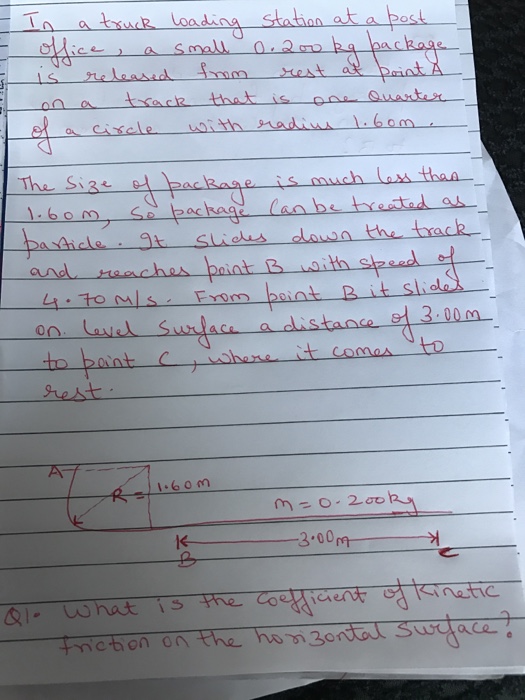 In a truck loading station at a post
office, a small 0.200 kg package
is released from rest at point A
on a track that is one Quarter
of a circle with radius 1.60m.
The Size of package is much less than
1.60m, So package Can be treated as
particle. It slides down the track
and reaches point B with speed of
4.70 m/s. From point B it slides
on level surface a distance of 3.00m
to point C, where it comes to
rest.
A
R = 1.60m
m = 0.200kg
3.00m
B
C
Q1. What is the coefficient of kinetic
friction on the horizontal surface?